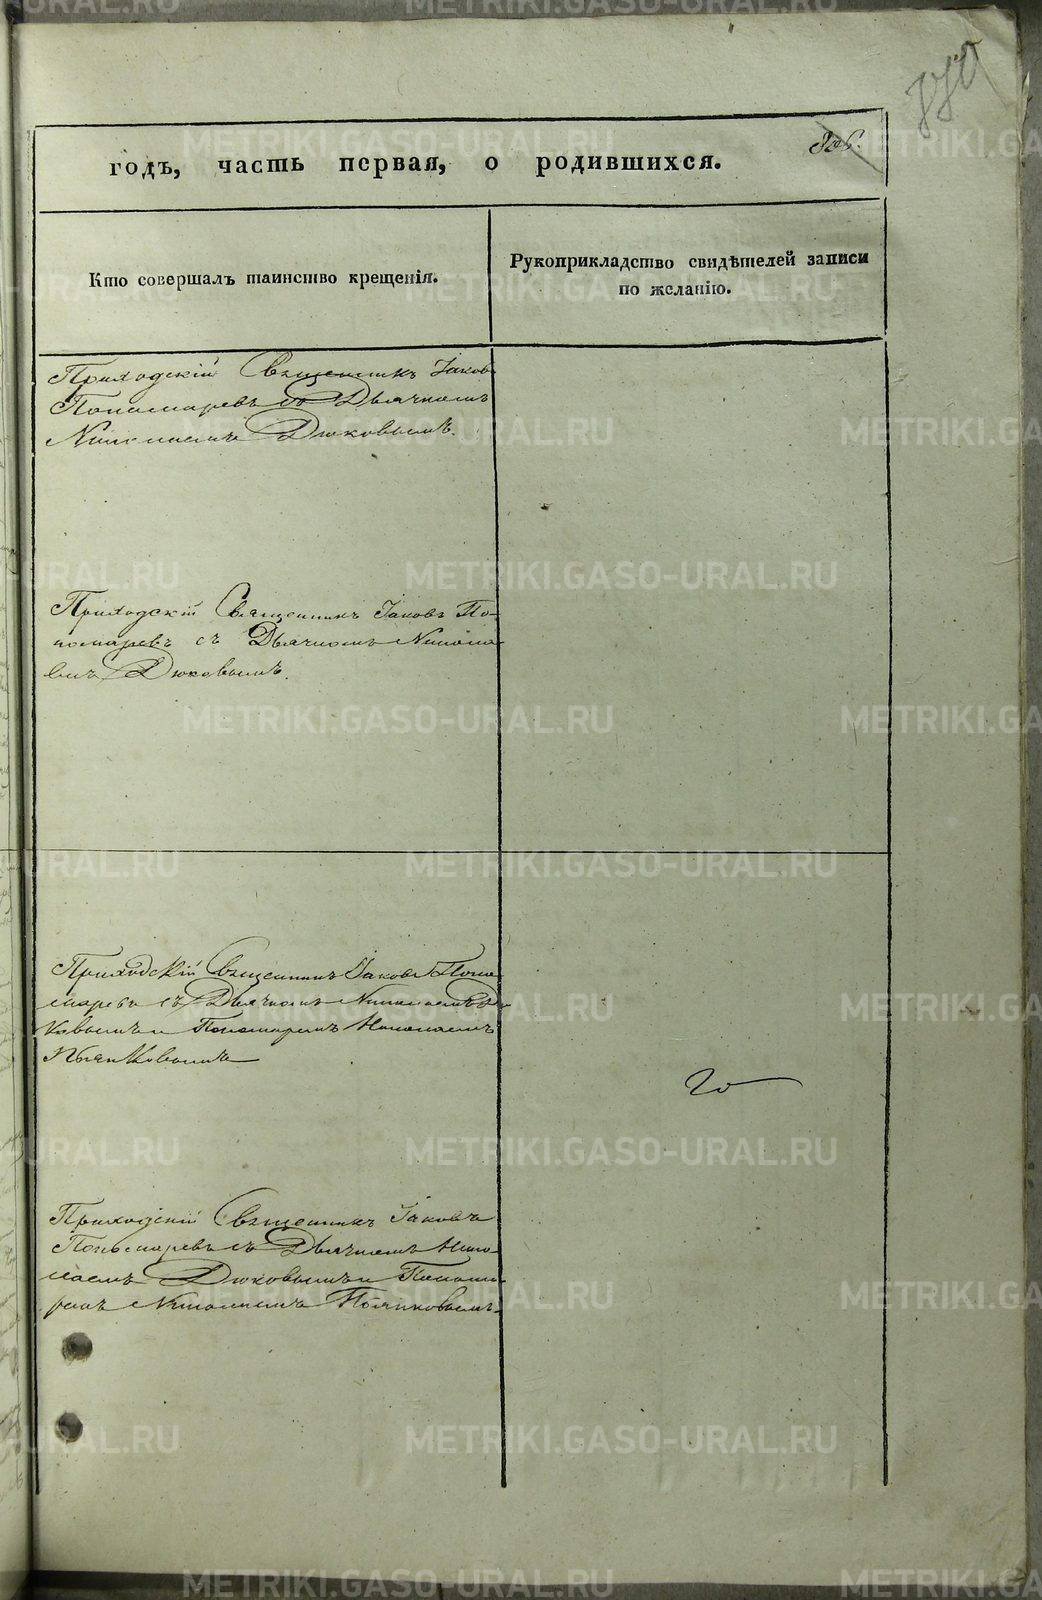 годъ, часть первая, о родившихся.
Кто совершалъ таинство крещенія.
Рукоприкладство свидѣтелей записи
по желанію.
Приходскій Священникъ Іаковъ
Пономаревъ съ Дьячкомъ
Николаемъ Дюковымъ.
Приходскій Священникъ Іаковъ По-
номаревъ съ Дьячкомъ Никола-
емъ Дюковымъ.
Приходскій Священникъ Іаковъ Поно
маревъ съ Дьячкомъ Николаемъ Дю
ковымъ и Пономаремъ Николаемъ
Пьянковымъ
Приходскій Священникъ Іаковъ
Пономаревъ съ Дьячкомъ Нико-
лаемъ Дюковымъ и Понома-
ремъ Николаемъ Пьянковымъ.
METRIKI.GASO-URAL.RU